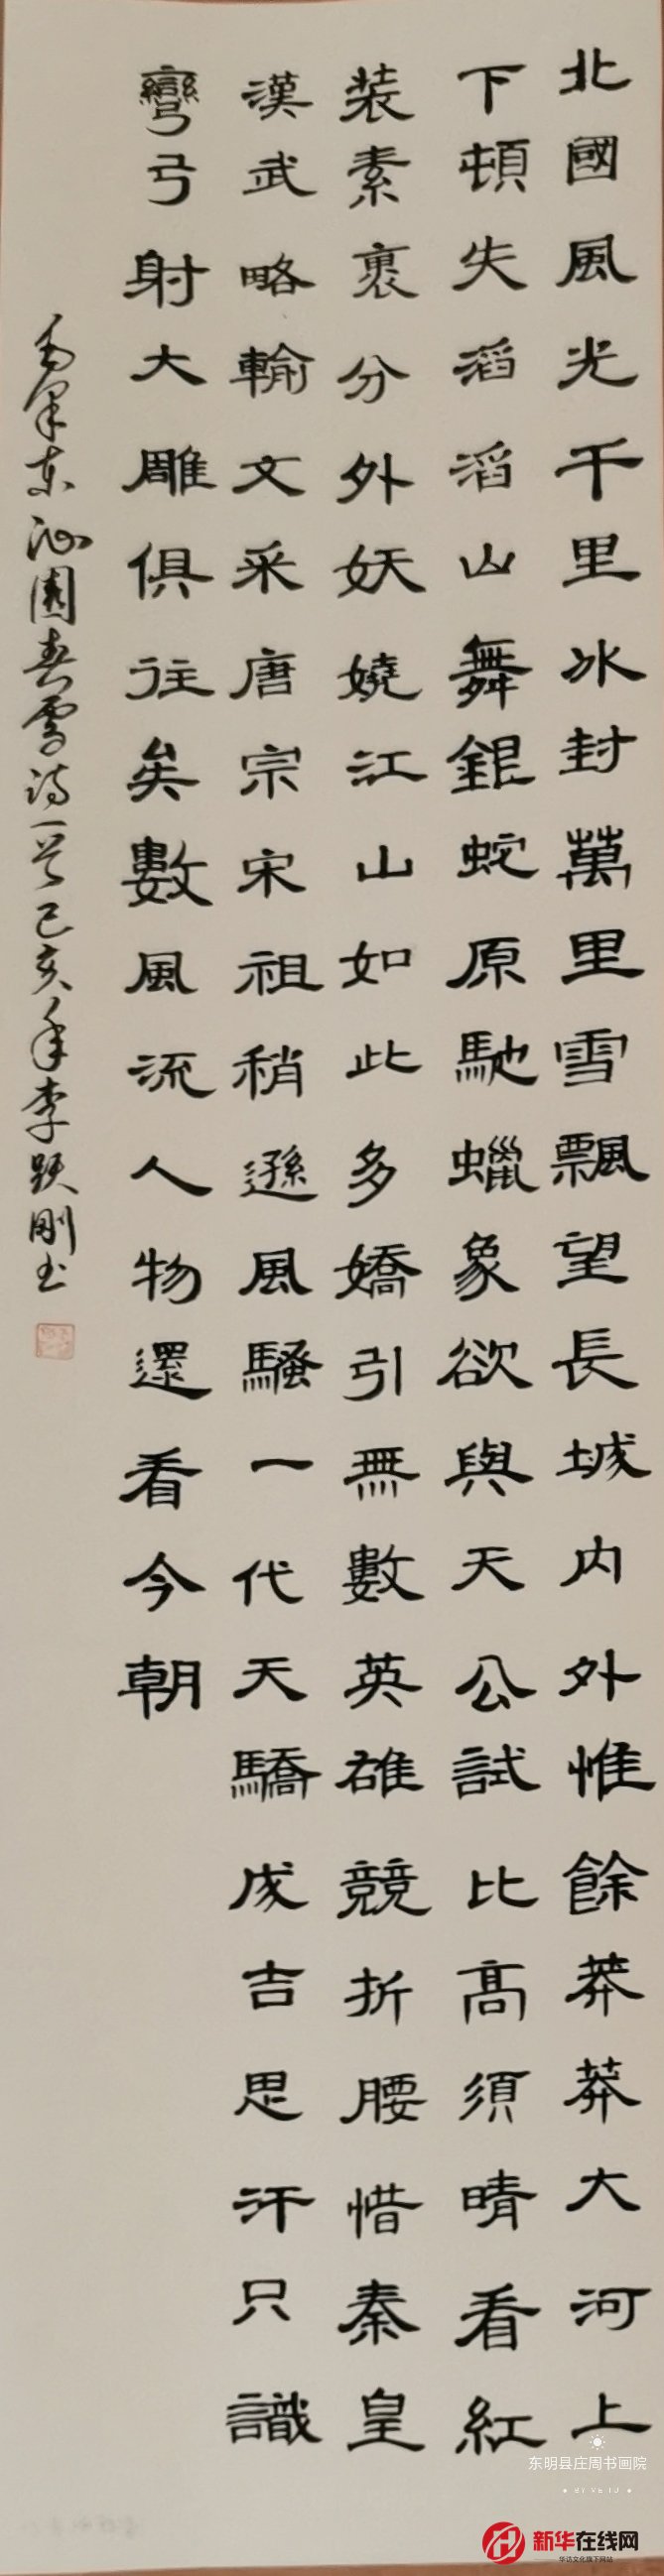 北國風光千里冰封萬里雪飄望長城内外惟餘莽莽大河上
下頓失滔滔山舞銀蛇原馳蠟象欲與天公試比高須晴看紅
装素裹分外妖嬈江山如此多嬌引無數英雄競折腰惜秦皇
漢武略輸文采唐宗宋祖稍遜風騷一代天驕成吉思汗只識
彎弓射大雕俱往矣數風流人物還看今朝
毛澤东沁園春雪詩一首己亥年李躍刚书
东明县庄周书画院
新华在线网
华语文化旗下网站